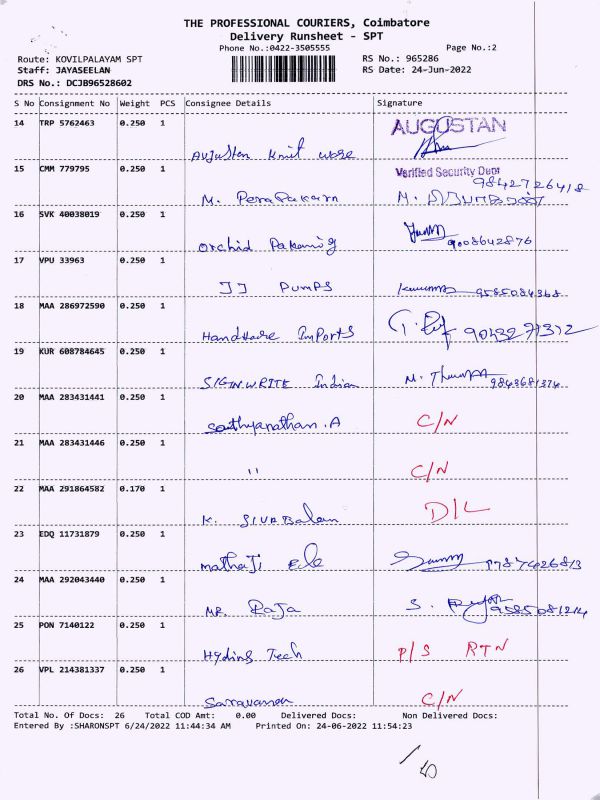 THE PROFESSIONAL COURIERS, Coimbatore
Delivery Runsheet - SPT
Phone No.:0422-3505555 Page No.:2
Route: KOVILPALAYAM SPT RS No.: 965286
Staff: JAYASEELAN RS Date: 24-Jun-2022
DRS No.: DCJB96528602
S No Consignment No Weight PCS Consignee Details Signature
14 TRP 5762463 0.250 1 AUGUSTAN
Augusten Knit wose
15 CMM 779795 0.250 1 Verified Security Dept
9842726418
M. M.
16 SVK 40038019 0.250 1
Orchid 9008642876
17 VPU 33963 0.250 1
JJ PUMPS 9585084368
18 MAA 286972590 0.250 1
Handware ImPorts
19 KUR 608784645 0.250 1
SIGN.WRITE Indian M. 9843681374
20 MAA 283431441 0.250 1
Sathyanathan.A C/N
21 MAA 283431446 0.250 1
" C/N
22 MAA 291864582 0.170 1
K. SIVABalan D/L
23 EDQ 11731879 0.250 1
mathaJi Ele 8787426813
24 MAA 292043440 0.250 1
MR. RaJa S. 9585081214
25 PON 7140122 0.250 1
Hyding Tech P/S RTN
26 VPL 214381337 0.250 1
Sarravanan C/N
Total No. Of Docs: 26 Total COD Amt: 0.00 Delivered Docs: Non Delivered Docs:
Entered By :SHARONSPT 6/24/2022 11:44:34 AM Printed On: 24-06-2022 11:54:23